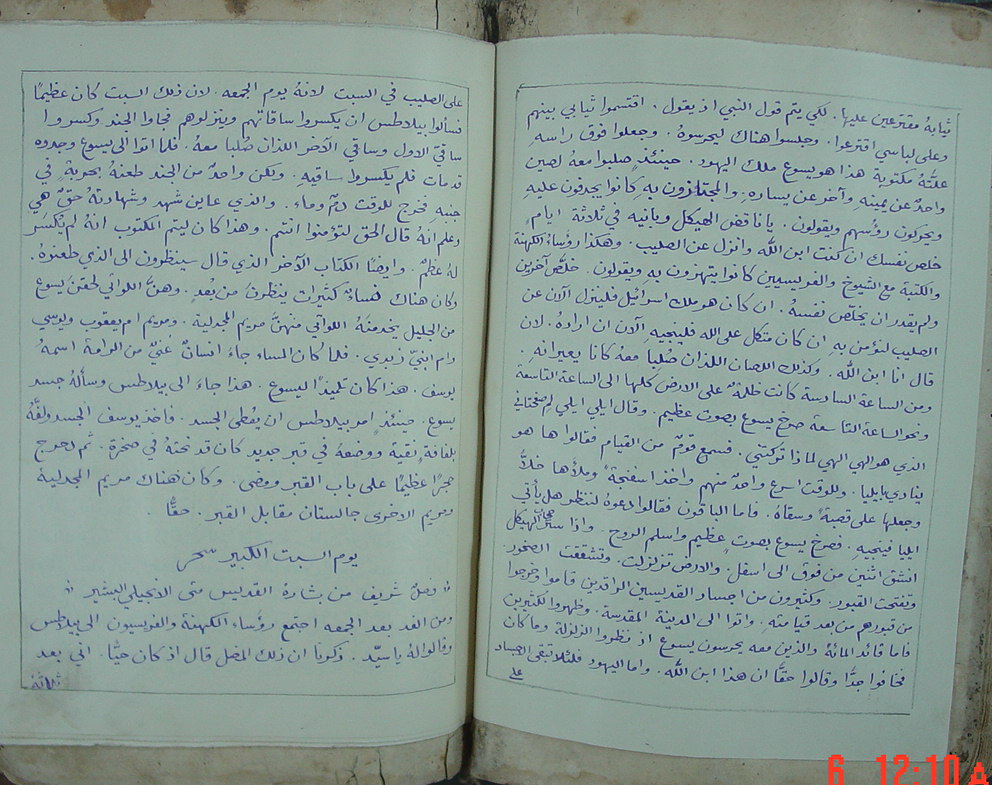 ثيابهُ مقترعين عليها. لكي يتم قول النبي اذ يقول. اقتسموا ثيابي بينهم
وعلى لباسي اقترعوا. وجلسوا هناك ليحرسوهُ. وجعلوا فوق راسهِ
علَّتهُ مكتوبة هذا هو يسوع ملك اليهود. حينئذٍ صلبوا معهُ لصين
واحدٌ عن يمينهِ وآخر عن يسارهِ. والمجتازون بهِ كانوا يجدفون عليهِ
ويحركون رؤسهم ويقولون. يا ناقض الهيكل وبانيه في ثلاثة ايام
خلص نفسك ان كنت ابن الله وانزل عن الصليب. وهكذا رؤساءُ الكهنة
والكتبة مع الشيوخ والفريسيين كانوا يتهزون بهِ ويقولون. خلَّص آخرين
ولم يقدر ان يخلّص نفسهُ. ان كان هو ملك اسرائيل فلينزل الآن عن
الصليب لنؤمن بهِ ان كان متكل على الله فلينجيهِ الآن ان ارادهُ. لان
قال انا ابن الله. وكذلك اللصان اللذان صُلبا معهُ كانا يعيرانهِ.
ومن الساعة السادسة كانت ظلمةٌ على الارض كلها الى الساعة التاسعة
ونحو الساعة التاسعة صرخ يسوع بصوت عظيم. وقال ايلي ايلي لم صفختاني
الذي هو الهي الهي لماذا تركتني. فسمع قومٌ من القيام فقالوا ها هو
ينادي بايليا. وللوقت اسرع واحدٌ منهم واخذ اسفنجةً وملأها خلاًّ
وجعلها على قصبةً وسقاهُ. فاما الباقون فقالوا دعوهُ لننظر هل يأتي
ايليا فينجيهِ. فصرخ يسوع بصوتٍ عظيم واسلم الروح. واذا ستر حجاب الهيكل
انشق اثنين من فوق الى اسفل. والارض تزلزلت. وتشققت الصخور
وتفتحت القبور. وكثيرون من اجساد القديسين الراقدين قاموا وخرجوا
من قبورهم من بعد قيامتهِ. واتوا الى المدينة المقدسة. وظهروا لكثيرين
فاما قائد المائة والذين معه يحرسون يسوع اذ نظروا الزلزلة وما كان
فخافوا جدًّا وقالوا حقًّا ان هذا ابن الله. واما اليهود فلئلا تبقى الاجساد
على
على الصليب في السبت لانهُ يوم الجمعه. لان ذلك السبت كان عظيمًا
فسألوا بيلاطس ان يكسروا ساقاتهم وينزلوهم فجاوا الجند وكسروا
ساقيّ الاول وساقي الآخر اللذان صُلبا معهُ. فلما اتوا الى يسوع وجدوه
قد مات فلم يكسروا ساقيهِ. ولكن واحدٌ من الجند طعنهُ بحربةٍ في
جنبهِ فخرج للوقت دمٌ وماء. والذي عاين شهد وشهادتهُ حقٌ هي
وعلم انهُ قال الحق لتؤمنوا انتم. وهذا كان ليتم المكتوب انهُ لم تكسر
لهُ عظمٌ. وايضًا الكتاب الآخر الذي قال سينظرون الى الذي طعنوهُ.
وكان هناك نساءٌ كثيرات ينظرنَ من بُعدٍ. وهنَّ اللواتي تبعنَ يسوع
من الجليل يخدمنهُ اللواتي منهنَّ مريم المجدلية. ومريم ام يعقوب ويوسي
وام ابنيّ زبدي. فلما كان المساء جاءَ انسانٌ غنيٌ من الرامة اسمهُ
يوسف. هذا كان تلميذًا ليسوع. هذا جاءَ الى بيلاطس وسألهُ جسد
يسوع. حينئذٍ امر بيلاطس ان يُعطى الجسد. فاخذ يوسف الجسد ولفَّهُ
بلفافةٍ نقية ووضعهُ في قبر جديد كان قد نحتهُ في صخرةٍ. ثم دحرج
حجرًا عظيمًا على باب القبر ومضى. وكان هناك مريم المجدلية
ومريم الاخرى جالستان مقابل القبر. حقًّا.
يوم السبت الكبير سحر
فصلٌ شريف من بشارة القديس متى الانجيلي البشير
ومن الغد بعد الجمعه اجتمع رؤساء الكهنة والفريسيون الى بيلاطس
وقالوا لهُ يا سيّد. ذكرنا ان ذلك المضل قال اذ كان حيًّا. اني بعد
ثلاثة
6 12:10